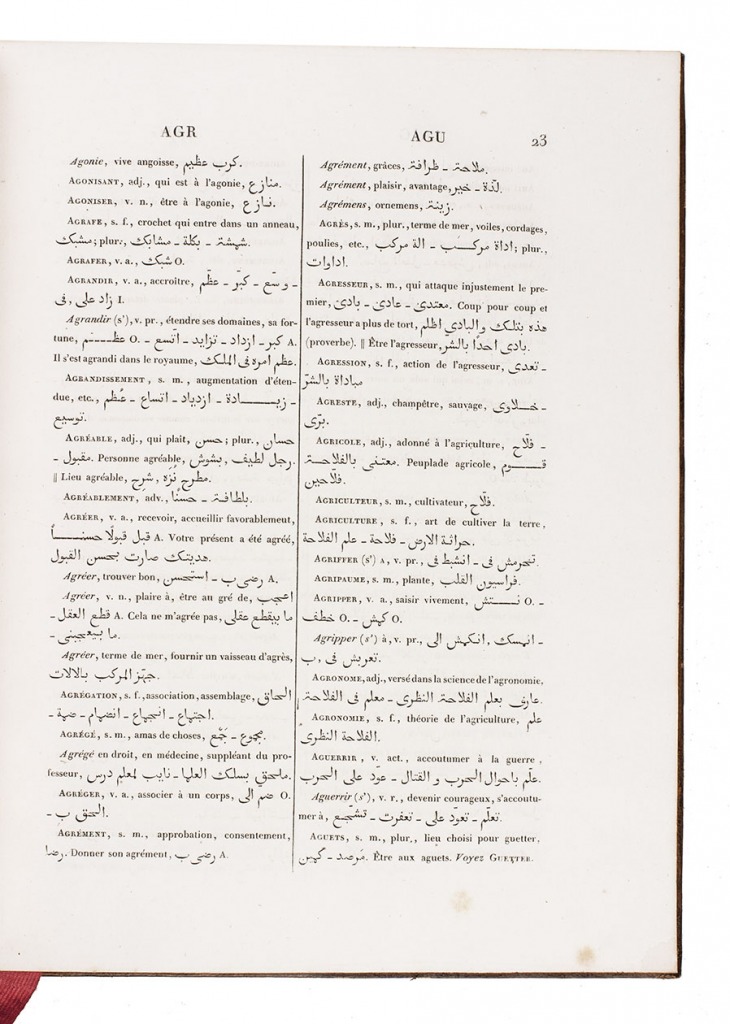 AGR
AGU
23
Agonie, vive angoisse, كرب عظيم.
AGONISANT, adj., qui est à l'agonie, منازع.
AGONISER, v. n., être à l'agonie, نازع.
AGRAFE, s. f., crochet qui entre dans un anneau,
شبشة - بكلة - مشابك; plur., مشبك
AGRAFER, v. a., شبك O.
AGRANDIR, v. a., accroître, وسّع - كبّر - عظّم -
زاد على, فى I.
Agrandir (s'), v. pr., étendre ses domaines, sa for-
tune, عظم O. - كبر - ازداد - تزايد - اتسع A.
Il s'est agrandi dans le royaume, عظم امره فى الملك.
AGRANDISSEMENT, s. m., augmentation d'éten-
due, etc., زيادة - ازدياد - اتساع - عُظم -
توسيع.
AGRÉABLE, adj., qui plait, حسن; plur., حسان
مقبول -. Personne agréable, رجل لطيف, بشوش.
‖ Lieu agréable, مطرح نزه, شرح.
AGRÉABLEMENT, adv., بلطافة - حسنًا.
AGRÉER, v. a., recevoir, accueillir favorablement,
قبل قبولًا حسنًا A. Votre présent a été agréé,
هديتك صارت بحسن القبول.
Agréer, trouver bon, رضى ب - استحسن A.
Agréer, v. n., plaire à, être au gré de, اعجب
قطع العقل - A. Cela ne m'agrée pas, ما بيقطع عقلى
ما بيعجبنى -.
Agréer, terme de mer, fournir un vaisseau d'agrès,
جهّز المركب بالالات.
AGRÉGATION, s. f., association, assemblage, الحاق
اجتماع - انجماع - انضمام - ضمة -.
AGRÉGÉ, s. m., amas de choses, مجموع - جَمْع.
Agrégé en droit, en médecine, suppléant du pro-
fesseur, ملحق بسلك العلما - نايب لمعلم درس.
AGRÉGER, v. a., associer à un corps, ضم الى O.
الحق ب -.
AGRÉMENT, s. m., approbation, consentement,
رضا. Donner son agrément, رضى ب A.
Agrément, grâces, ملاحة - ظرافة.
Agrément, plaisir, avantage, لذة - خير.
Agrémens, ornemens, زينة.
AGRÈS, s. m., plur., terme de mer, voiles, cordages,
poulies, etc., اداة مركب - الة مركب; plur.,
اداوات.
AGRESSEUR, s. m., qui attaque injustement le pre-
mier, معتدى - عادى - بادى. Coup pour coup et
l'agresseur a plus de tort, هذه بتلك والبادى اظلم
(proverbe). ‖ Être l'agresseur, بادى احدًا بالشر.
AGRESSION, s. f., action de l'agresseur, تعدى -
مباداة بالشرّ
AGRESTE, adj., champêtre, sauvage, خلاوى -
برّى.
AGRICOLE, adj., adonné à l'agriculture, فلّاح -
معتنى بالفلاحة. Peuplade agricole, قوم
فلاحين.
AGRICULTEUR, s. m., cultivateur, فلاح.
AGRICULTURE, s. f., art de cultiver la terre,
حراثة الارض - فلاحة - علم الفلاحة.
AGRIFFER (s') A, v. pr., تخرمش فى - انشبط فى.
AGRIPAUME, s. m., plante, فراسيون القلب.
AGRIPPER, v. a., saisir vivement, نتش O. -
خطف O. - كمش O.
Agripper (s') à, v. pr., انمسك, انكمش الى -
تعربش فى, ب.
AGRONOME, adj., versé dans la science de l'agronomie,
عارف بعلم الفلاحة النظرى - معلم فى الفلاحة.
AGRONOMIE, s. f., théorie de l'agriculture, علم
الفلاحة النظرى.
AGUERRIR, v. act., accoutumer à la guerre,
علّم باحوال الحرب و القتال - عوّد على الحرب.
Aguerrir (s'), v. r., devenir courageux, s'accoutu-
mer à, تعلّم - تعوّد على - تعفرت - تشجّع.
AGUETS, s. m., plur., lieu choisi pour guetter,
مرصد - كمين. Être aux aguets. Voyez GUETTER.